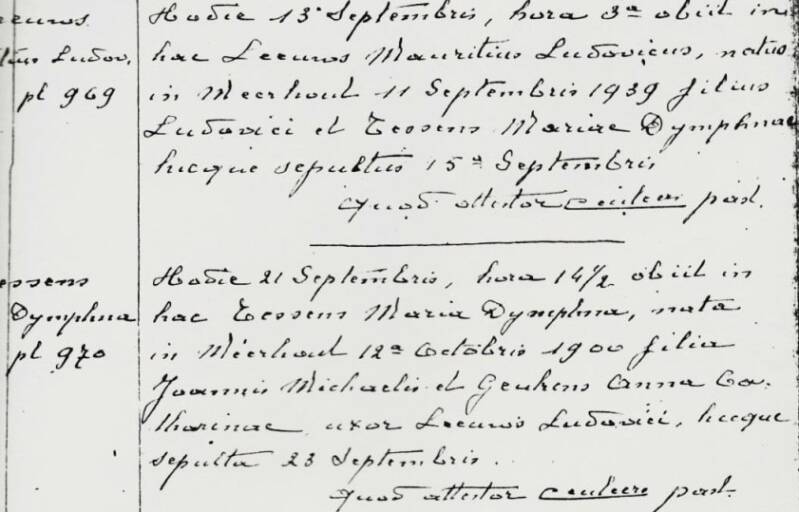 Hodie 13ª Septembris, hora 3ª obiit in
Ludov. hac Leeuws Mauritius Ludovicus, natus
pl 969 in Meerhout 11 Septembris 1939 filius
Ludovici et Tessens Mariae Dymphnae
hicque sepultus 15ª Septembris
Quod attestor past.
essens Hodie 21 Septembris, hora 14½ obiit in
Dymphna hac Tessens Maria Dymphna, nata
pl 970 in Meerhout 12ª Octobris 1900 filia
Joannis Michaelis et Geukens Anna Ca-
tharinae uxor Leeuws Ludovici, hicque
sepulta 23 Septembris.
Quod attestor past.